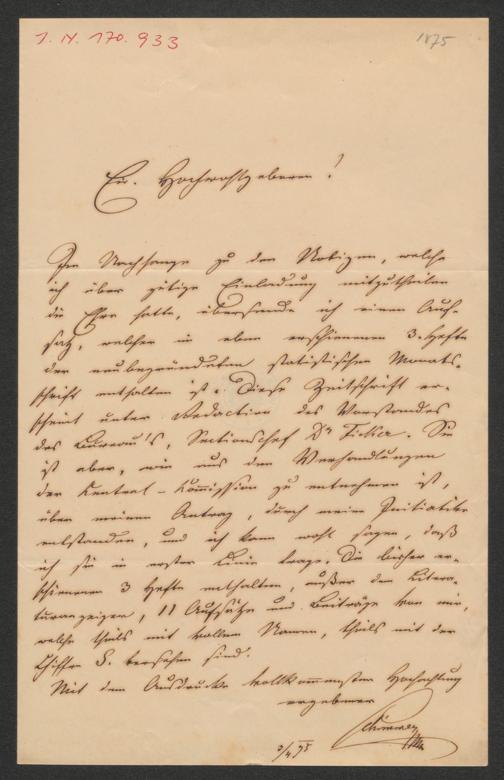 I. N. 170.933
1875
Eu. Hochwohlgeboren!
Im Nachhange zu den Notizen, welche
ich über gütige Einladung mitzutheilen
die Ehre hatte, übersende ich einen Auf-
satz, welcher im eben erschienenen 3. Hefte
der neubegründeten statistischen Monats-
schrift enthalten ist. Diese Zeitschrift er-
scheint unter Redaction des Vorstandes
des Bureau's, Sectionschef Dr Ficker. Sie
ist aber, wie aus den Verhandlungen
der Central-Commission zu entnehmen ist,
über meinen Antrag, durch meine Initiative
entstanden, und ich kann wohl sagen, daß
ich sie in erster Linie trage. Die bisher er-
schienenen 3 Hefte enthalten, außer den Litera-
turanzeigen, 11 Aufsätze und Beiträge von mir,
welche theils mit vollem Namen, theils mit der
Chiffre S. versehen sind.
Mit dem Ausdrucke vollkommenster Hochachtung
ergebener
Schimmer
/4 75